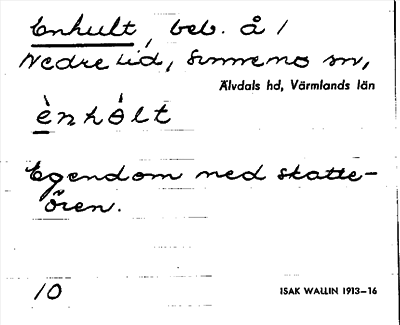 Enhult, beb. å /
Nedre Lid, Sunnemo sn,
Älvdals hd, Värmlands län
ènhólt
Egendom med skatte-
ören.
10
ISAK WALLIN 1913–16